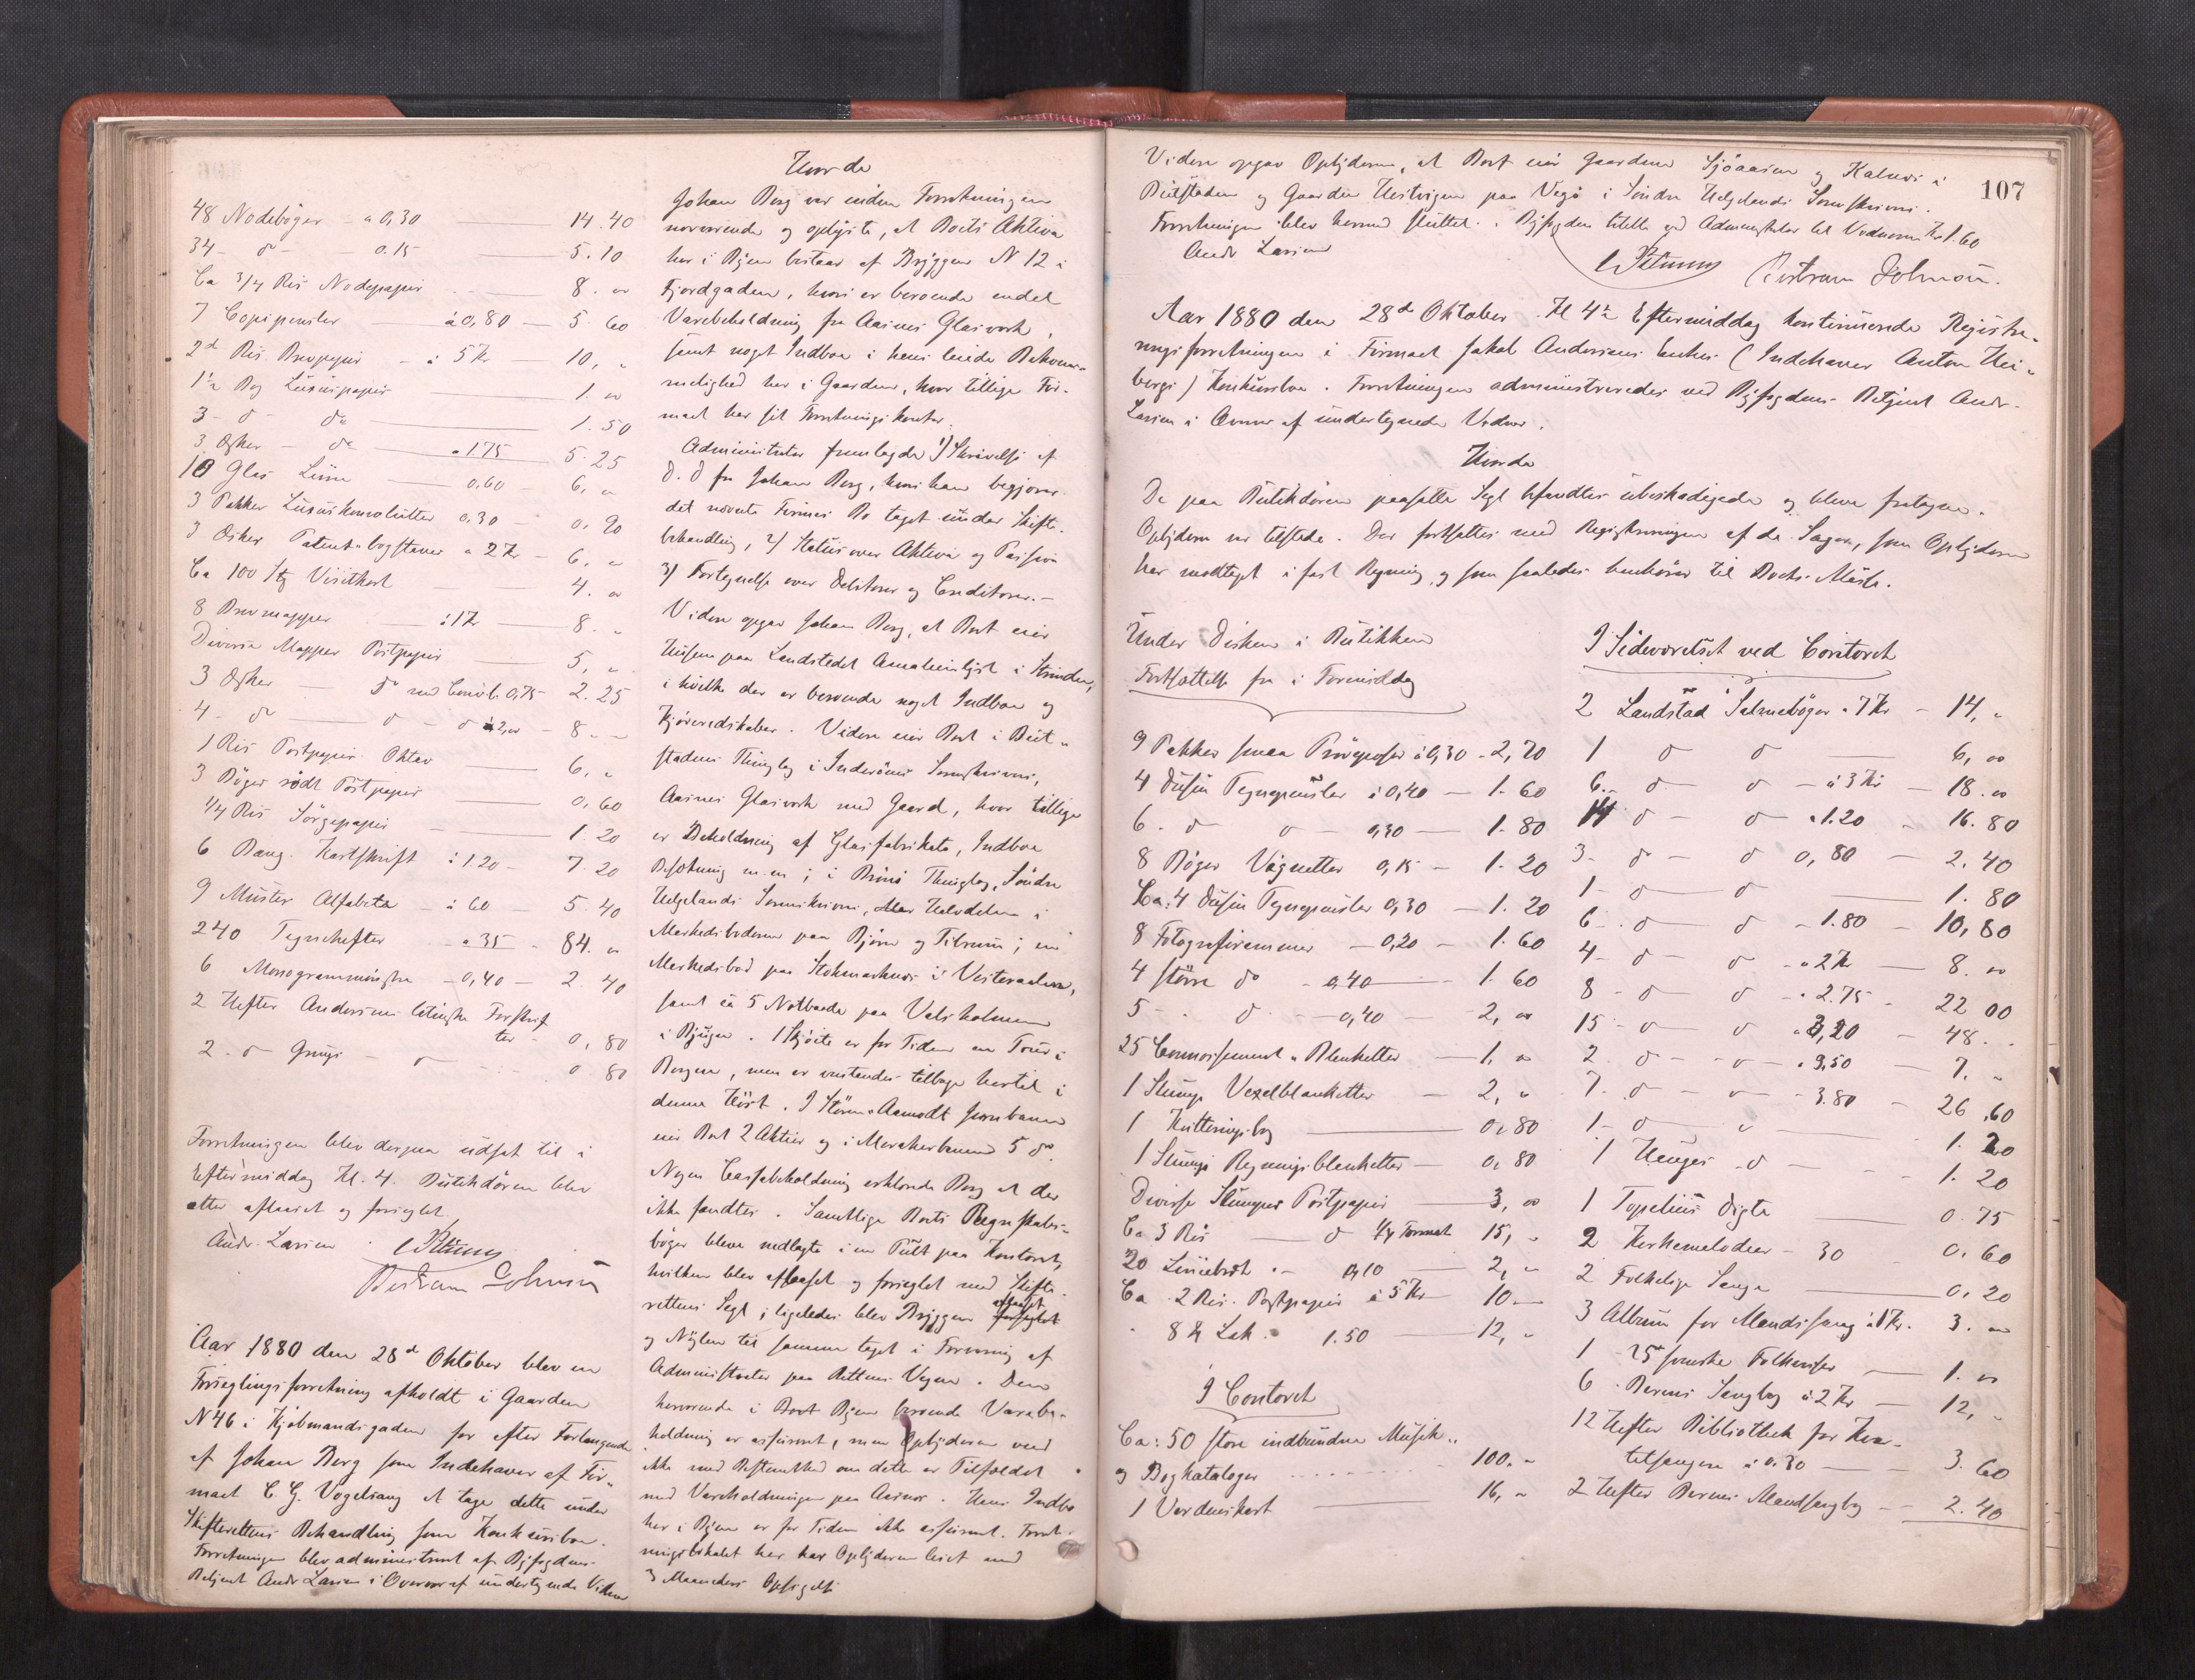 48 Nodebøger - a 0,30 14.40
34 - d - 0.15 5.10
Ca 3/4 Ris Nodepapir 8. "
7 Copipensler à 0,80 - 5.60
2 d Ris Brevpapir - à 5 Kr - 10, "
1½ Bog Luxuspapir 1. "
3 - d do 1.50
3 Æsker - do a 1.75 5.25
10 Glas Liim 0.60 - 6, "
3 Pakker 0,30 - 0.90
3 Æsker Patent-bogstaver a 2 Kr - 6, "
Ca 100 Stk Visitkort 4. "
8 Brevmapper à 1 Kr 8. "
Diverse Mapper Postpapir 5, "
3 Æsker - do med Convol. 0,75 2.25
4 - d - d - d à 2,00 - 8 - -
1 Ris Postpapir Oktav 6, "
3 Bøger rødt Postpapir 0,60
1/4 Ris Sørgepapir 1.20
6 Bang. Kartskrift à 1.20 - 7.20
9 Mønster Alfabeta - à 60 5.40
240 Tegnehefter - a 35 - 84. "
6 Monogrammønstre - 0,40 - 2.40
2 Hefter Andersens latinske Forskrif
ter - 0,80
2 - d - d - 0.80
Forretningen blev derpaa udsat til i
Eftermiddag Kl. 4. Butikdøren blev
atter aflaaset og forseglet.
Andr. Larsen
Bertram
Aar 1880 den 28d Oktober blev en
Forseglingsforretning afholdt i Gaarden
N 46 i Kjøbmandsgaden for efter Forlangende
af Johan Berg som Indehaver af Fir-
maet C. G. Vogelsang at tage dette under
Skifterettens Behandling som Konkursbo.
Forretningen blev administreret af Byfogdens
Betjent Andr Larsen i Overvær af undertegnede Vidner
Hvorda
Johan Berg var under Forretningen
nærværende og oplyste, at Boets Aktiva
her i Byen bestaar af Bryggen N 12 i
Fjordgaden, hvori er beroende endel
Varebeholdning fra Aasnes Glasværk,
samt noget Indbo i hans leiede Bekvem-
melighed her i Gaarden, hvor tillige Fir-
maet har sit Forretningskontor.
Administrator fremlagde 1) Skrivelse af
D. D fra Johan Berg, hvori han begjærer
det nævnte Firmas Bo taget under Skifte-
behandling, 2) Status over Aktiva og Passiva
3) Fortegnelse over Debitorer og Creditorer. -
Videre opgav Johan Berg, at Boet eier
Husene paa Landstedet Annaheimlyst i Strinden,
i hvilke der er beroende noget Indbo og
Kjøreredskaber. Videre eier Boet i Beit-
stadens Thinglag i Inderøens Sorenskriveri,
Aasnes Glasværk med Gaard, hvor tillige
er Beholdning af Glasfabrikata, Indbo
Besætning m.m; i Brønø Thinglag, Søndre
Helgelands Sorenskriveri, Halvdelen i
Markedsboderne paa Bjørn og Tilrum; en
Markedsbod paa Stokmarknæs i Vesteraalen,
samt ca 5 Notbaade paa Valsholmen
i Bjugn. 1 Skjøite er for Tiden en Tour i
Bergen, men er ventendes tilbage hertil i
denne Høst. I Støren-Aamodt Jernbanen
eier Boet 2 Aktier og i Merakerbanen 5 do.
Nogen Cassabeholdning erklærede Berg at der
ikke fandtes. Samtlige Boets Regnskabs-
bøger bleve nedlagte i en Pult paa Kontoret,
hvilken blev aflaaset og forseglet med Skifte-
rettens Segl; ligeledes blev Bryggen aflaaset forseglet
og Nøglen til samme taget i Forvaring af
Administrator paa Rettens Vegne. Den
herværende i Boets Byen beroende Varebe-
holdning er assureret, men Oplyderen ved
ikke med Bestemthed om dette er Tilfældet
med Varebeholdningen paa Aasnæs. Hans Indbo
her i Byen er for Tiden ikke assureret. Forret-
ningslokalet her har Oplyderen leiet med
3 Maaneders Opsigelse
107
Videre opgav Oplyderen, at Boet eier Gaardene Sjøaasen og Kalnæs i
Beitstaden og Gaarden Hestvigen paa Vegø i Søndre Helgelands Sorenskriveri.
Forretningen blev hermed sluttet. Byfogden tilstiller ved Administrator til Vidnerne Kr 1.60
Andr Larsen
Bertram
Aar 1880 den 28d Oktober Kl 4½ Eftermiddag kontinueredes Registre-
ringsforretningen i Firmaet Jakob Andersens Enkes (Indehaver Anton Hei-
bergs) Konkursbo. Forretningen administreredes ved Byfogdens Betjent Andr.
Larsen i Overvær af undertegnede Vidner.
Hvorda
De paa Butikdøren paasatte Segl befandtes ubeskadigede og bleve fratagne.
Oplyderen var tilstede. Der fortsattes med Registreringen af de Sager, som Oplyderen
har modtaget i fast Regning, og som saaledes henhører til Boets Masse.
Under Disken i Butikken
Fortsættelse fra i Formiddag
9 Pakker smaa à 0,30 - 2,70
4 Dusin Tegnepensler à 0,40 - 1.60
6 - d - d - 0,30 - 1.80
8 Bøger Vignetter 0,15 - 1.20
Ca: 4 Dusin Tegnepensler 0,30 - 1.20
8 Fotografirammer - 0,20 - 1.60
4 større do - 0,40 1.60
5 - d - 0,40 - 2, "
25 Connossement-Blanketter - 1, "
1 Slump Vexelblanketter - 2, "
1 Kvitteringsbog 0,80
1 Slump Regningsblanketter - 0,80
Diverse Slumper Postpapir 3, "
Ca 3 Ris d 1/4 Format 15, "
20 - 0,10 - 2, "
Ca 2 Ris Postpapir à 5 Kr 10 -
8 Lak 1.50 12, "
I Contoret
Ca: 50 store indbundne Musik-
og Bogkataloger 100. "
1 Verdenskart 16, "
I Sideværelset ved Contoret
2 Landstad Salmebøger a 7 Kr - 14, "
1 d d 6, "
6 - d d - à 3 Kr - 18. "
14 d - d - a 1.20 - 16.80
3 - d - d 0,80 - 2.40
1 - d - d 1.80
6 - d d - 1.80 - 10,80
4 - d - d - a 2 Kr - 8. "
8 - d d - a 2.75 - 22 00
15 - d d a 3,20 - 48. .
2 d - d - a 3,50 - 7. "
7 - d - d - 3.80 - 26.60
1 - d d 1.20
1 Hauges - d - 1.20
1 Topelius Digte 0.75
2 Kirkemelodier - 30 - 0,60
2 Folkelige Sange 0,20
3 Album for Mandssang à 1 Kr. 3. "
1 25 svenske Folkeviser 1. "
6 Barnes Sangbog à 2 Kr - 12, "
12 Hefter Bibliothek for Kvar-
tetsangere à 0.30 3.60
2 Hefter Mandssangbog - 2.40